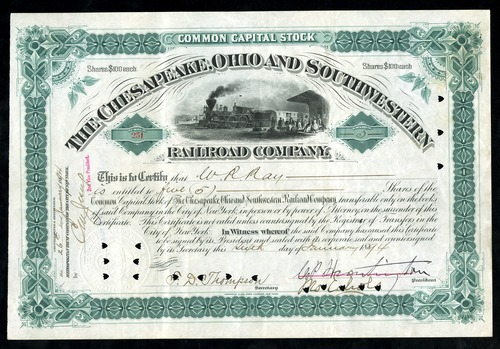 COMMON CAPITAL STOCK
Shares $100 each Shares $100 each
THE CHESAPEAKE, OHIO AND SOUTHWESTERN
RAILROAD COMPANY.
251
This is to Certify that W. R. Ray
is entitled to five (5) Shares of the
Common Capital Stock of The Chesapeake, Ohio and Southwestern Railroad Company, transferable only on the books
of said Company in the City of New York, in person or by power of Attorney, on the surrender of this
Certificate. This Certificate is not valid unless countersigned by the Registrar of Transfers in the
City of New York. In Witness whereof the said Company has caused this Certificate
to be signed by its President and sealed with its corporate seal and countersigned
by its Secretary this day of January 1894
E. D. Thompson
Secretary
C. P. Huntington
President
2nd Vice President